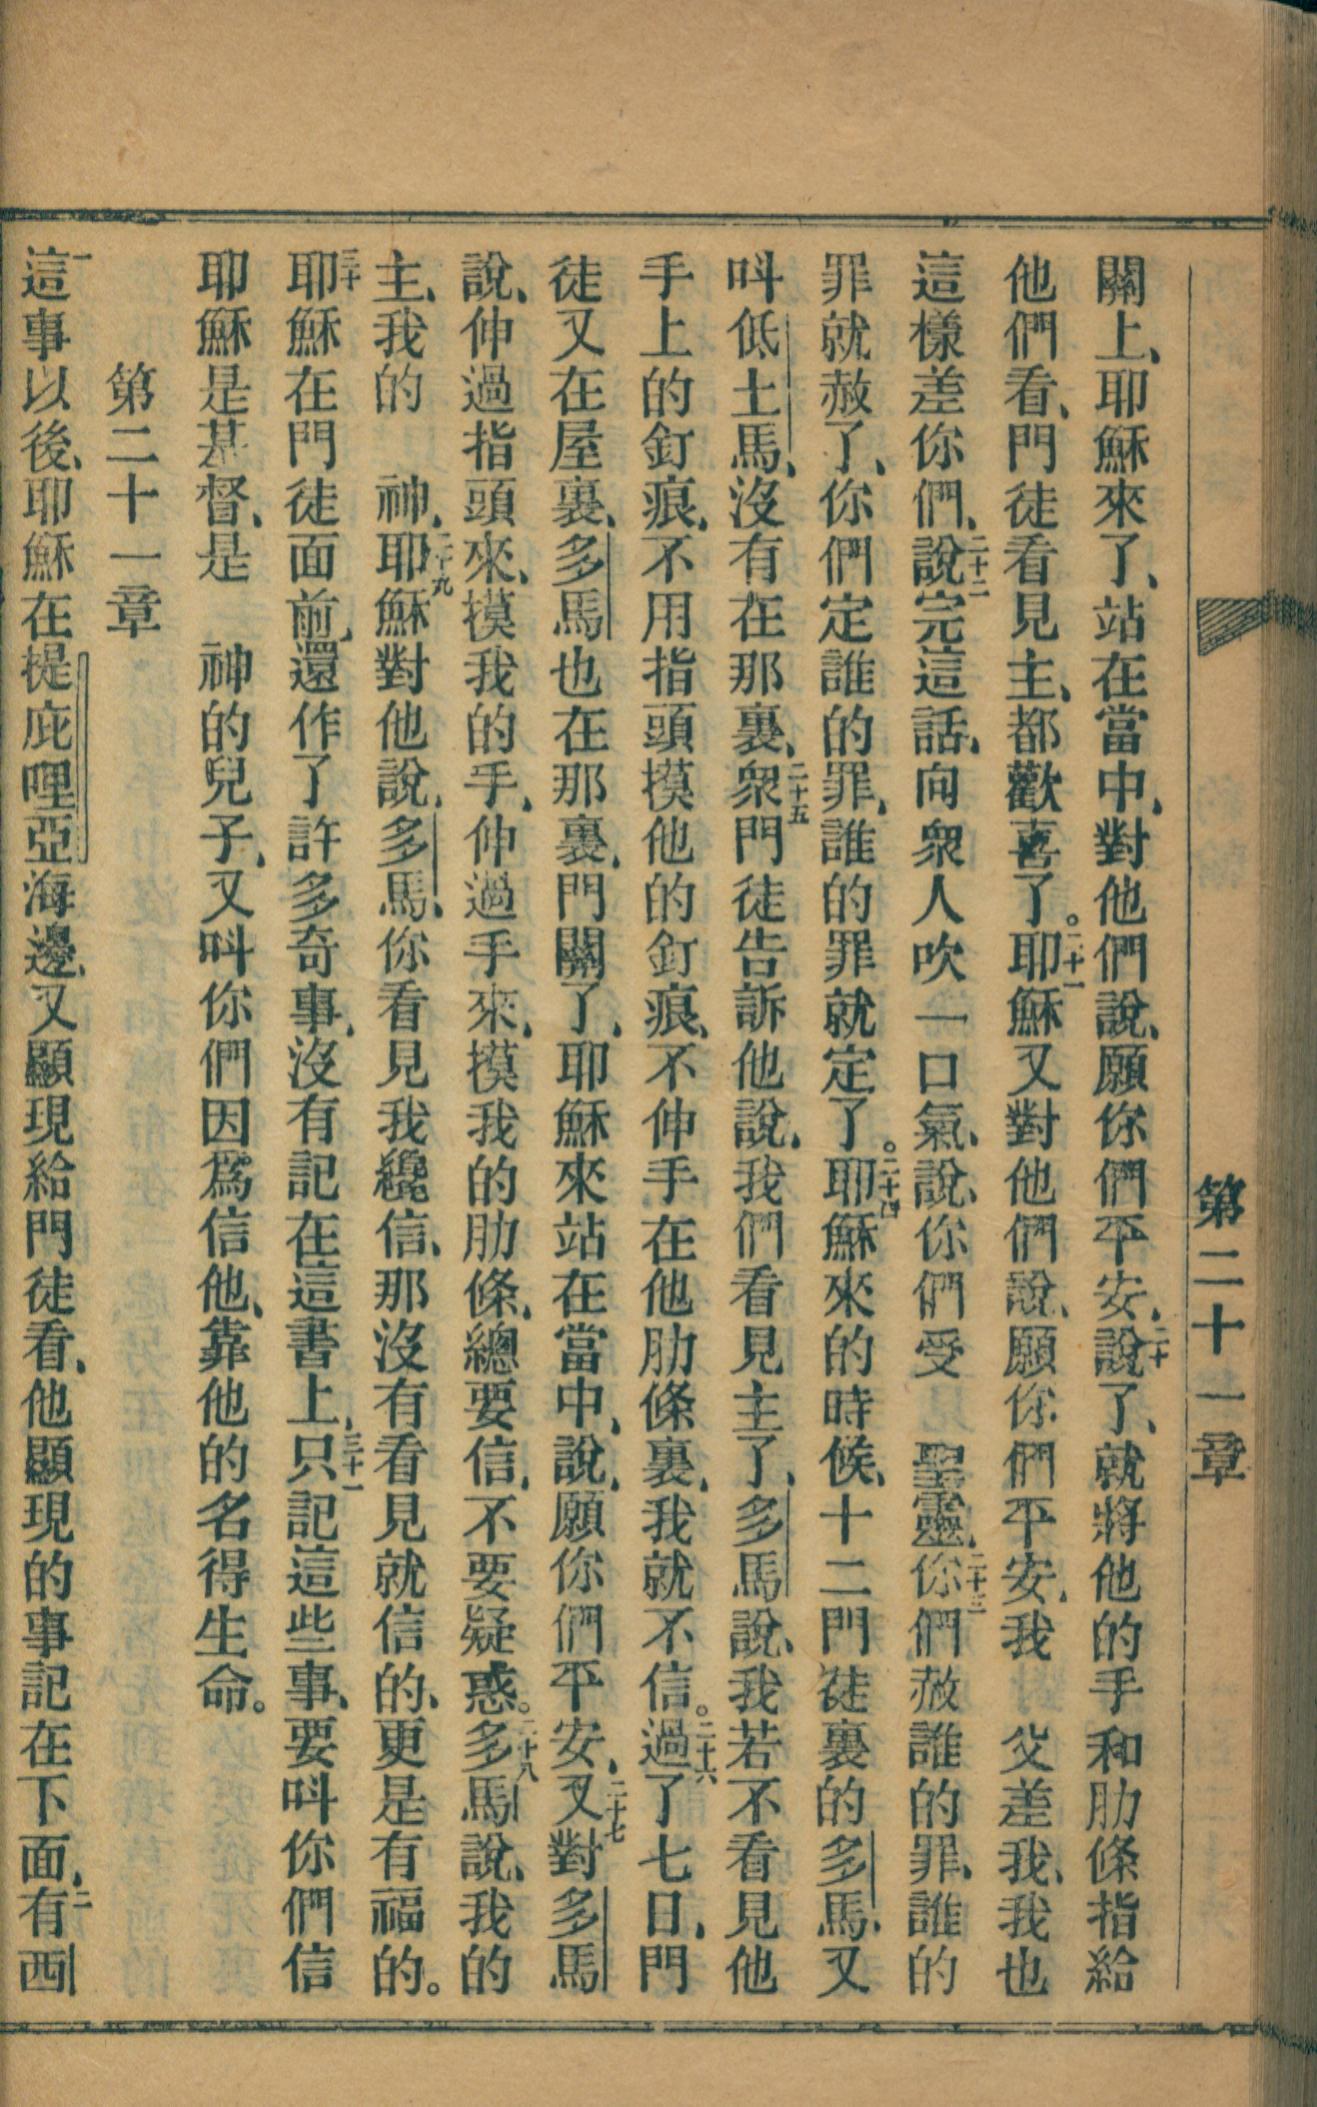 第二十一章
關上、耶穌來了、站在當中、對他們說、願你們平安、二十說了、就將他的手和肋條指給
他們看、門徒看見主、都歡喜了。二十一耶穌又對他們說、願你們平安、我　父差我、我也
這樣差你們、二十二說完這話、向衆人吹一口氣、說、你們受　聖靈、二十三你們赦誰的罪、誰的
罪就赦了、你們定誰的罪、誰的罪就定了。二十四耶穌來的時候、十二門徒裏的多馬、又
呌低土馬、沒有在那裏、二十五衆門徒告訴他說、我們看見主了、多馬說、我若不看見他
手上的釘痕、不用指頭摸他的釘痕、不伸手在他肋條裏、我就不信。二十六過了七日、門
徒又在屋裏、多馬也在那裏、門關了、耶穌來站在當中、說、願你們平安、二十七又對多馬
說、伸過指頭來、摸我的手、伸過手來、摸我的肋條、總要信、不要疑惑。二十八多馬說、我的
主、我的　神、二十九耶穌對他說、多馬、你看見我纔信、那沒有看見就信的、更是有福的。
三十耶穌在門徒面前、還作了許多奇事、沒有記在這書上、三十一只記這些事、要呌你們信
耶穌是基督、是　神的兒子、又呌你們因爲信他、靠他的名得生命。
第二十一章
一這事以後、耶穌在提庇哩亞海邊、又顯現給門徒看、他顯現的事記在下面、二有西